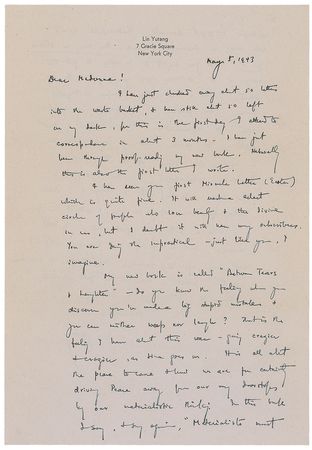 Lin Yutang
7 Gracie Square
New York City
May 5, 1943
Dear Madonna!
I have just chucked away about 50 letters
into the waste basket, & have still about 50 left
on my desk, for this is the first day I attend to
correspondence in about 3 months. I have just
been through proof-reading my new book. Naturally
this is also the first letter I write.
I have seen your first Miracle Letter (Easter)
which is quite fine. It will reach a select
circle of people who love beauty & the divine
in us, but I doubt it will reach many subscribers.
You are doing the impractical — just like you, I
imagine.
My new book is called "Between Tears
& Laughter" — do you know the feeling when you
discover you've made a big stupid mistake &
you can neither weep nor laugh? That is the
feeling I have about this war — going crazier
& crazier as time goes on. It is all about
the peace to come & how we are
driving Peace away from our very doorsteps,
by our materialistic thinking. In this book
I say, & say again, "Materialists must